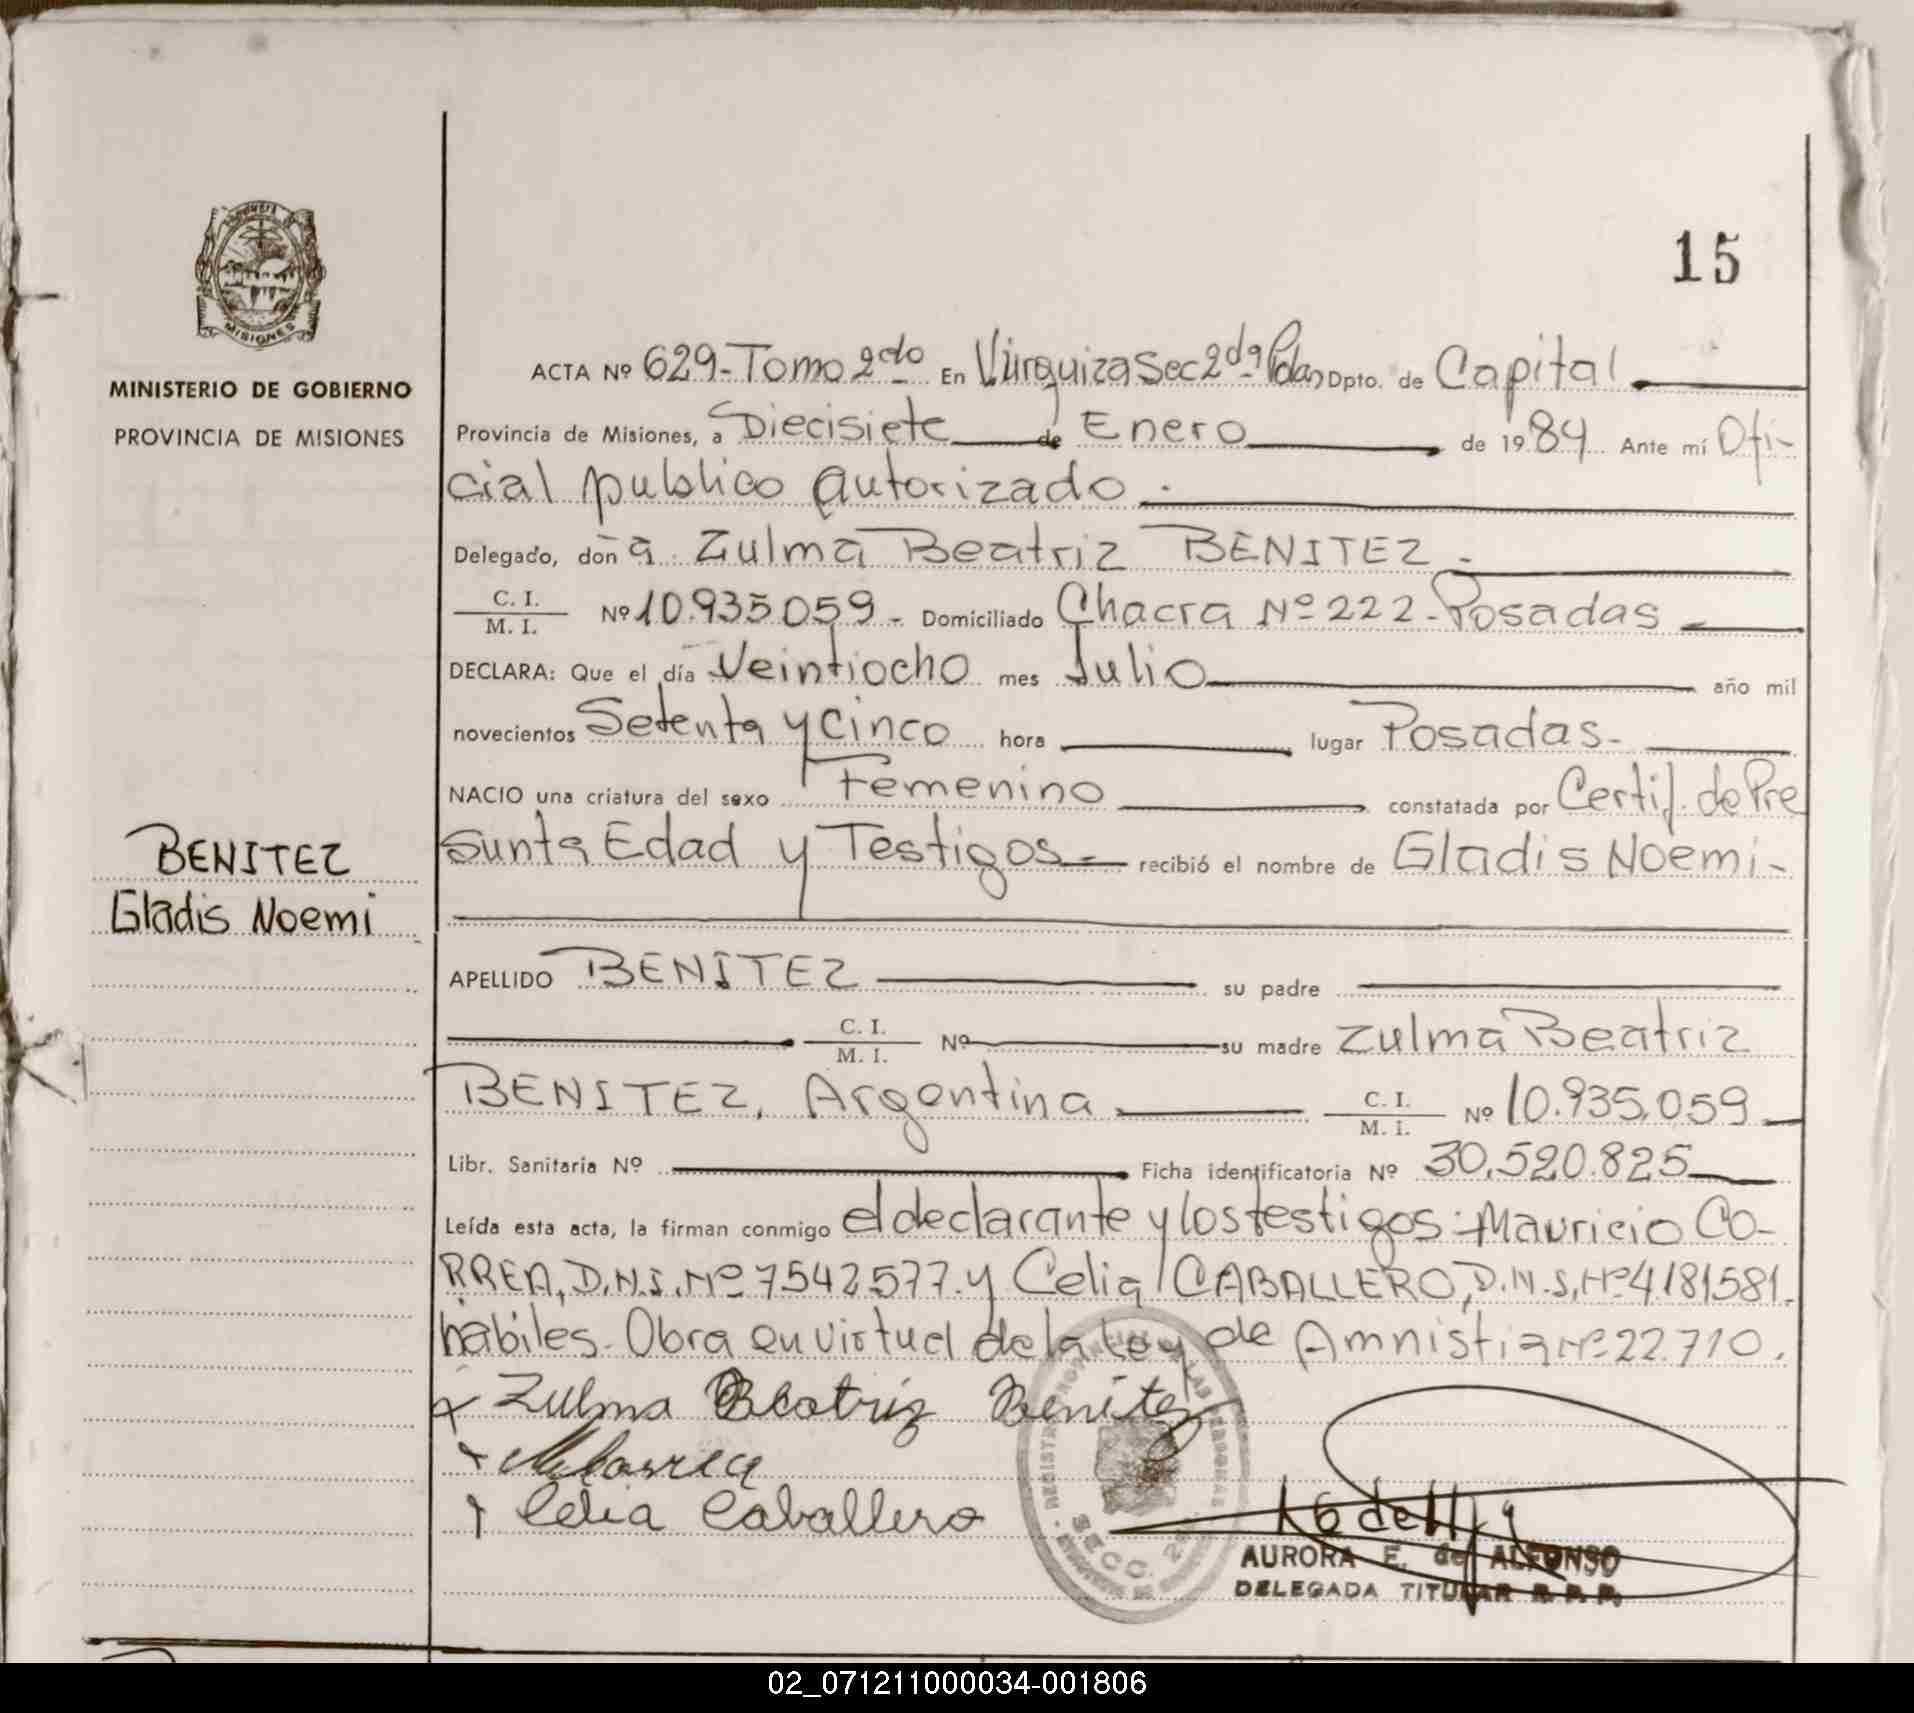 15
MISIONES
MINISTERIO DE GOBIERNO
PROVINCIA DE MISIONES
ACTA Nº 629-Tomo 2do En V.Urquiza Sec 2da Pdas Dpto. de Capital
Provincia de Misiones, a Diecisiete de Enero de 1984 Ante mí Ofi-
cial publico autorizado.
Delegado, don a. Zulma Beatriz BENITEZ -
C. I.
M. I. Nº 10.935.059 - Domiciliado Chacra Nº 222 - Posadas
DECLARA: Que el día Veintiocho mes Julio año mil
novecientos Setenta y Cinco hora lugar Posadas-
NACIO una criatura del sexo Femenino constatada por Certif. de Pre
sunta Edad y Testigos - recibió el nombre de Gladis Noemi-
BENITEZ
Gladis Noemi
APELLIDO BENITEZ su padre
C. I.
M. I. Nº su madre Zulma Beatriz
BENITEZ, Argentina C. I.
M. I. Nº 10.935.059
Libr. Sanitaria Nº Ficha identificatoria Nº 30.520.825
Leída esta acta, la firman conmigo el declarante y los testigos: Mauricio CO-
RREA, D.N.I. Nº 7542577. y Celia CABALLERO, D.N.I. Nº 4181581.
habiles. Obra en virtud de la Ley de Amnistia Nº 22.710.
Zulma Beatriz Benitez
MCorrea
Celia Caballero
SECC. 2da
AURORA E. de ALFONSO
DELEGADA TITULAR R. P. P.
02_071211000034-001806